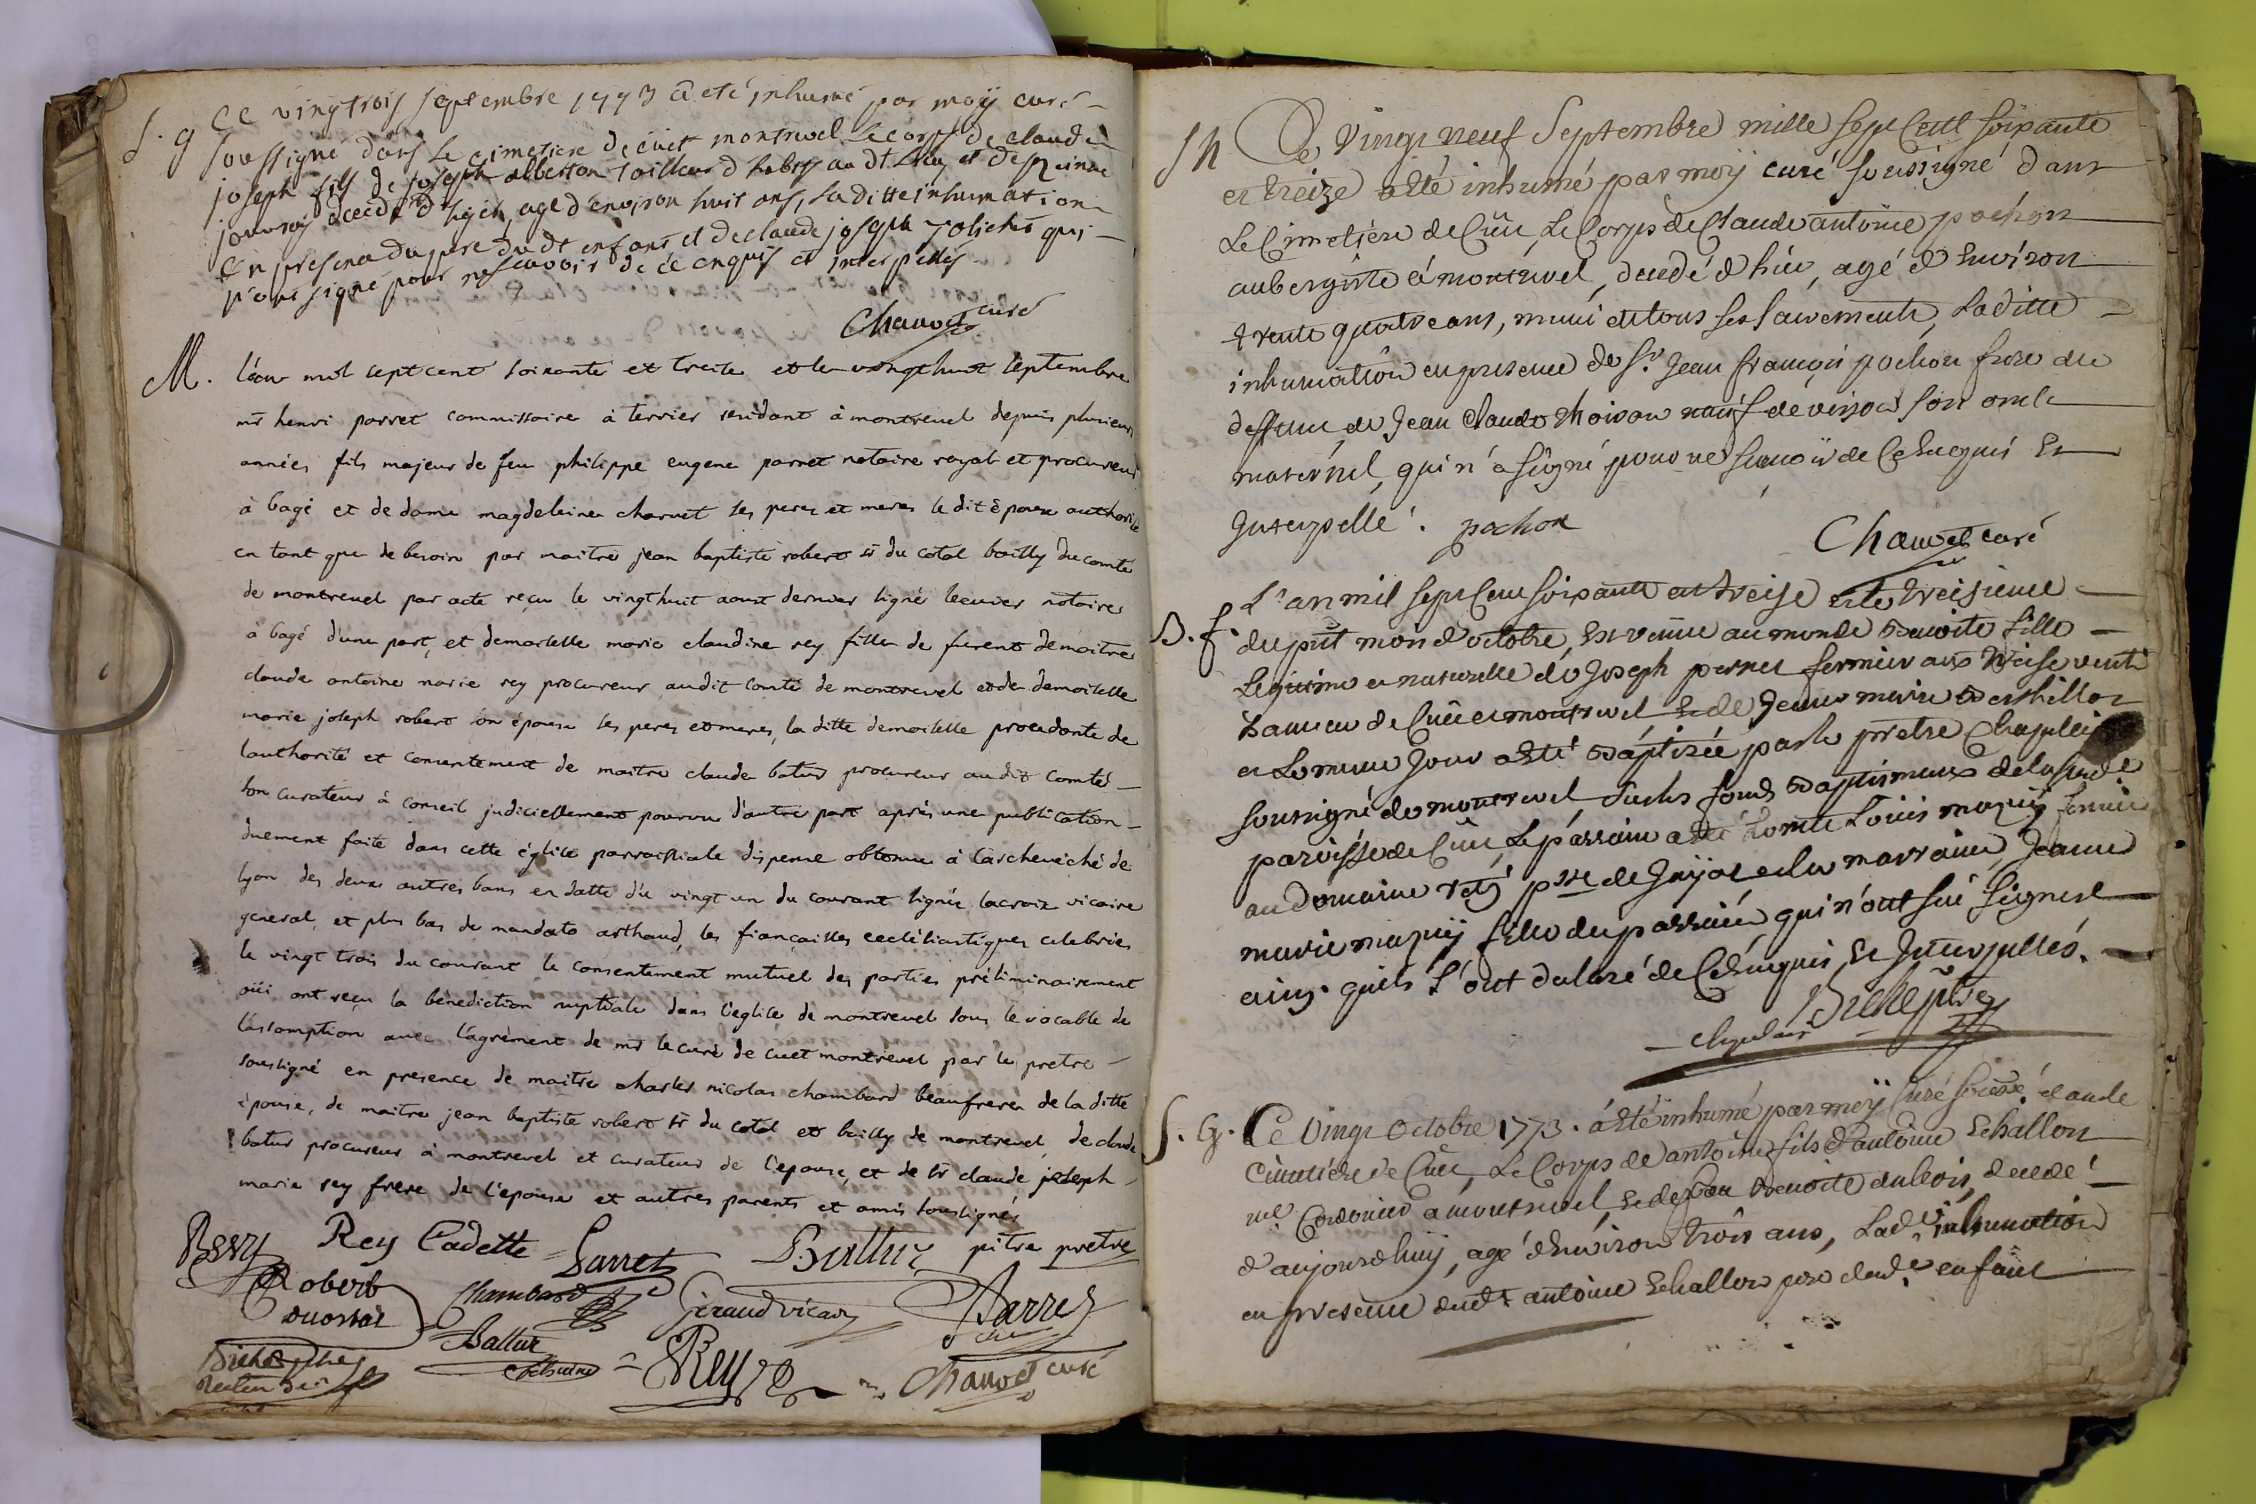 S. g Ce vingtrois septembre 1773 a eté inhumé par moÿ curé
soussigné dans le cimetiere de cuet montrevel le corps de claude
joseph fils de joseph alberton tailleur d'habits au dt. lieu et de
decedé d'hyer, agé d'environ huit ans, la ditte inhumation
en presence du pere du dt enfant et de claude joseph qui
n'ont signé pour ne scavoir de ce enquis et interpellés
Chauvet curé
M. L'an mil sept cent soixante et treize et le vingthuit septembre
mr henri parret commissaire à terrier residant à montrevel depuis plusieurs
années fils majeur de feu philippe eugene parret notaire royal et procureur
à bagé et de dame magdeleine charvet ses peres et meres le dit époux authorisé
en tant que de besoin par maitre jean baptiste robert sr du cotal bailly du comté
de montrevel par acte reçu le vingthuit aoust dernier signé lecuier notaire
à bagé d'une part, et demoiselle marie claudine rey fille de furent de maitre
claude antoine marie rey procureur audit comté de montrevel et de demoiselle
marie joseph robert son épouse ses peres et meres, la ditte demoiselle procedante de
l'authorité et consentement de maitre claude batur procureur audit comté
son curateur à conseil judiciellement pourvu d'autre part après une publication
duement faite dans cette église parroissiale dispense obtenue à l'archeveché de
lyon des deux autres bans en datte du vingt un du courant signée lacroix vicaire
general, et plus bas de mandato arthaud, les fiançailles ecclésiastiques celebrées
le vingt trois du courant le consentement mutuel des parties préliminairement
oüi ont reçu la bénediction nuptiale dans l'église de montrevel sous le vocable de
l'assomption avec l'agrément de mr le curé de cuet montrevel par le pretre
soussigné en presence de maitre charles nicolas chambard beaufrere de la ditte
épouse, de maitre jean baptiste robert sr du cotal et bailly de montrevel, de claude
batur procureur à montrevel et curateur de l'epouse, et de sr claude joseph
marie rey frere de l'épouse et autres parents et amis soussignés
Rey Cadette Parret Battur pitre pretre
Robert Chambard Giraud vicair Parret
Battur
Rey Chauvet curé
Sh Ce Vingt neuf Septembre mille sept Cent soixante
et treize a Eté inhumé par moÿ curé soussigné dans
Le Cimetiere de Cüet, Le Corps de Claude antoine pochon
aubergiste à montrevel, decedé d'hier, agé d'Environ
trente quatre ans, muni de tous ses sacrements, Laditte
inhumation en presence de Sr. Jean françois pochon frere du
deffunt, de Jean Claude son oncle
maternel, qui n'a signé pour ne scavoir de Ce Enquis Et
Interpellé. pochon
Chauvet curé
B. f. L'an mil sept Cent soixante et treise et le treisieme
du pnt mois d'octobre, Est venue au monde Benoite fille
Legitime et naturelle de Joseph perret fermier aux treise vents
hameau de Cüet et montrevel Et de Jeanne marie Berthillot
et Le meme Jour a Eté Baptizée par le pretre Chapelain
soussigné de montrevel sur les fonds Baptismaux de la susde
paroisse de Cüet, Le parrain a Eté Louis fermier
au Domaine psse de et la marraine, Jeanne
marie fille du parrain qui n'ont scü signer
ainsi quils l'ont declaré de Ce Enquis Et Interpellés.
chapelain
S. G. Ce Vingt octobre 1773. a Eté inhumé par moÿ Curé soussé. dans le
Cimetiére de Cüet, Le Corps de antoine fils d'antoine Echallon
me Cordonier à montrevel Et de Benoite dubois, decedé
d'aujourdhuij, agé d'Environ trois ans, Lade inhumation
en presence dudt antoine Echallon pere dud. enfant